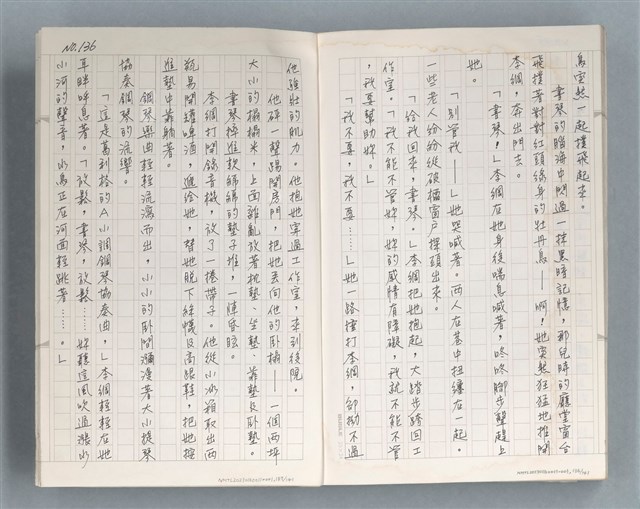 為突然一起撲飛起來。
書琴的腦海中閃過一抹黑暗記憶，那兒時的廳堂窗台
飛撲著對對紅頭綠身的牡丹鳥——啊，她突然狂猛地推開
李綱，奔出門去。
「書琴！」李綱在她身後喘息喊著，咚咚腳步聲趕上
她。
「別管我——」她哭喊著。兩人在巷中扭纏在一起。
一些老人紛紛從破檔窗戶探頭出來。
「給我回來，書琴。」李綱把她抱起，大踏步踏回工
作室。「我不能不管妳，妳的感情有障礙，我就不能不管
，我要幫助妳。」
「我不要，我不要……」她一路撞打李綱，卻拗不過
NO.136
他強壯的肌力。他抱她穿過工作室，來到後院。
他砰一聲踢開房門，把她丟向他的臥榻——一個兩坪
大小的榻榻米，上面雜亂放著枕墊、坐墊、靠墊及臥墊。
書琴掉進軟綿綿的墊子堆，一陣昏眩。
李綱打開錄音機，放了一捲帶子。他從小冰箱取出兩
瓶易開罐啤酒，遞給她，替她脫下絲襪及高跟鞋，把她擁
進墊中靠躺著。
鋼琴樂曲輕輕流瀉而出，小小的臥閣瀰漫著大小提琴
協奏鋼琴的流響。
「這是葛利格的A小調鋼琴協奏曲，」李綱輕輕在她
耳畔呼息著。「放鬆，書琴，放鬆……妳聽這風吹過潺水
小河的聲音，水鳥正在河面輕跳著……。」